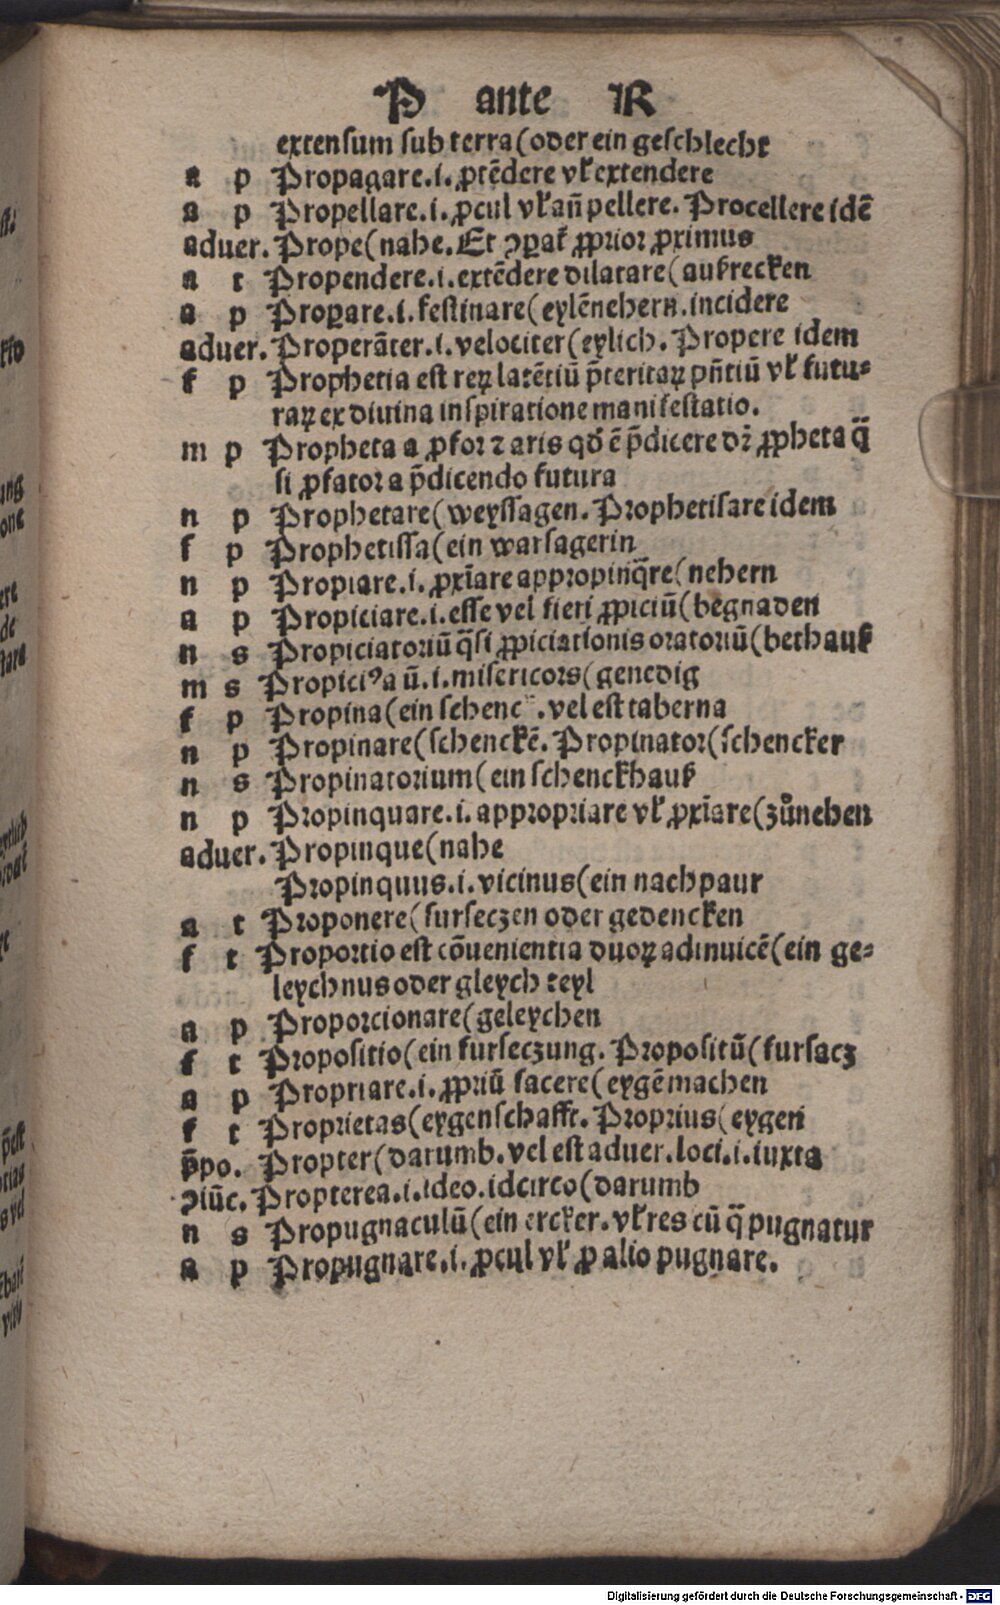 P ante R
extensum sub terra (oder ein geschlecht
a p Propagare .i. ꝓtēdere vƚ extendere
a p Propellare .i. ꝓcul vƚ añ pellere. Procellere idē
aduer. Prope (nahe. Et ꝯꝑat̃ ꝓprior ꝓximus
a t Propendere .i. extēdere dilatare (außrecken
a p Proꝑare .i. festinare (eylē nehern. incidere
aduer. Properāter .i. velociter (eylich. Propere idem
f p Prophetia est reꝝ latētiū p̄teritaꝝ pn̄tiū vƚ futu-
raꝝ ex diuina inspiratione manifestatio.
m p Propheta a ꝓfor ⁊ aris qd̛ ē p̄dicere dr̄ ꝓpheta q̄
si ꝓfator a p̄dicendo futura
n p Prophetare (weyssagen. Prophetisare idem
f p Prophetissa (ein warsagerin
n p Propiare .i. ꝓxīare appropinq̄re (nehern
a p Propiciare .i. esse vel fieri ꝓpiciū (begnaden
n s Propiciatoriū q̄si ꝓpiciationis oratoriū (bethauß
m s Propiciꝰ a ū .i. misericors (genedig
f p Propina (ein schenc . vel est taberna
n p Propinare (schenckē. Propinator (schencker
n s Propinatorium (ein schenckhauß
n p Propinquare .i. appropriare vƚ ꝓxīare (zůnehen
aduer. Propinque (nahe
Propinquus .i. vicinus (ein nachpaur
a t Proponere (furseczen oder gedencken
f t Proportio est cōuenientia duoꝝ adinuicē (ein ge-
leychnus oder gleych teyl
a p Proporcionare (geleychen
f t Propositio (ein furseczung. Propositū (fursacz
a p Propriare .i. ꝓpriū facere (eygē machen
f t Proprietas (eygenschafft. Proprius (eygen
p̄po. Propter (darumb. vel est aduer. loci .i. iuxta
ꝯiūc. Propterea .i. ideo. idcirco (darumb
n s Propugnaculū (ein ercker. vƚ res cū q̄ pugnatur
a p Propugnare .i. ꝓcul vƚ ꝓ alio pugnare.
Digitalisierung gefördert durch die Deutsche Forschungsgemeinschaft - DFG